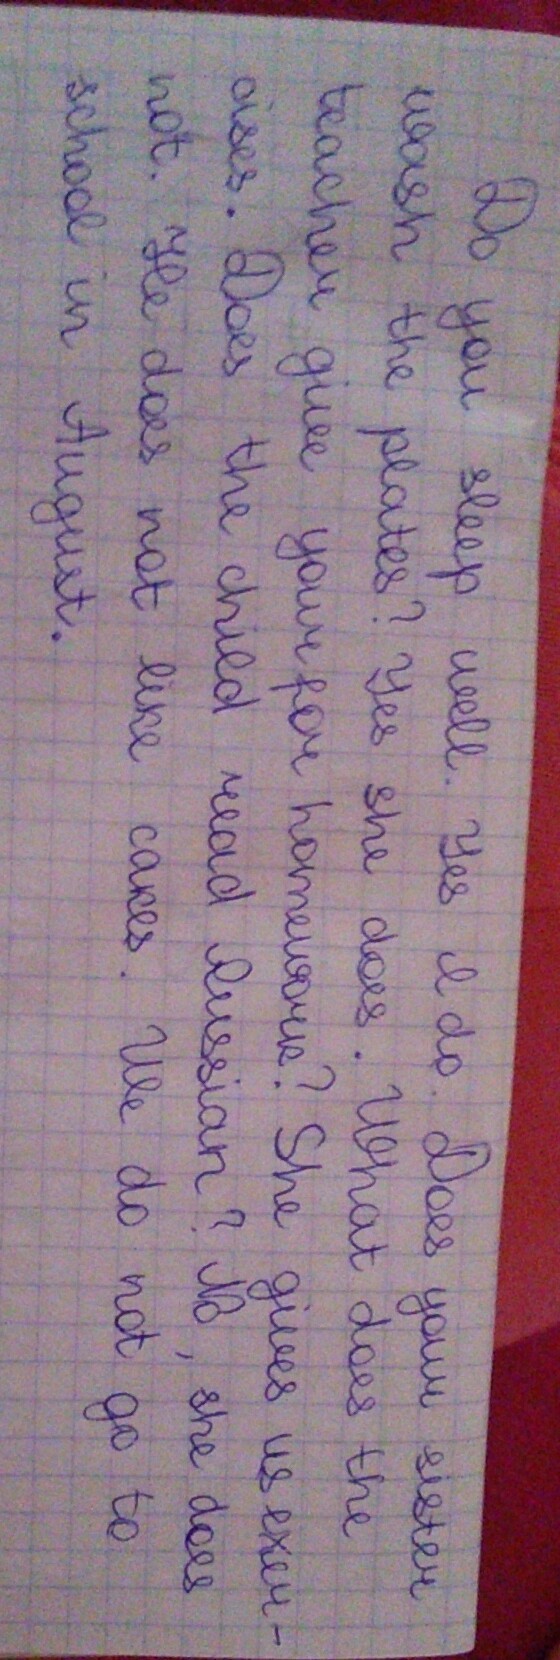 Do you sleep well. Yes I do. Does your sister
wash the plates? Yes she does. What does the
teacher give your for homework? She gives us exer-
cises. Does the child read Russian? No, she does
not. He does not like cakes. We do not go to
school in August.